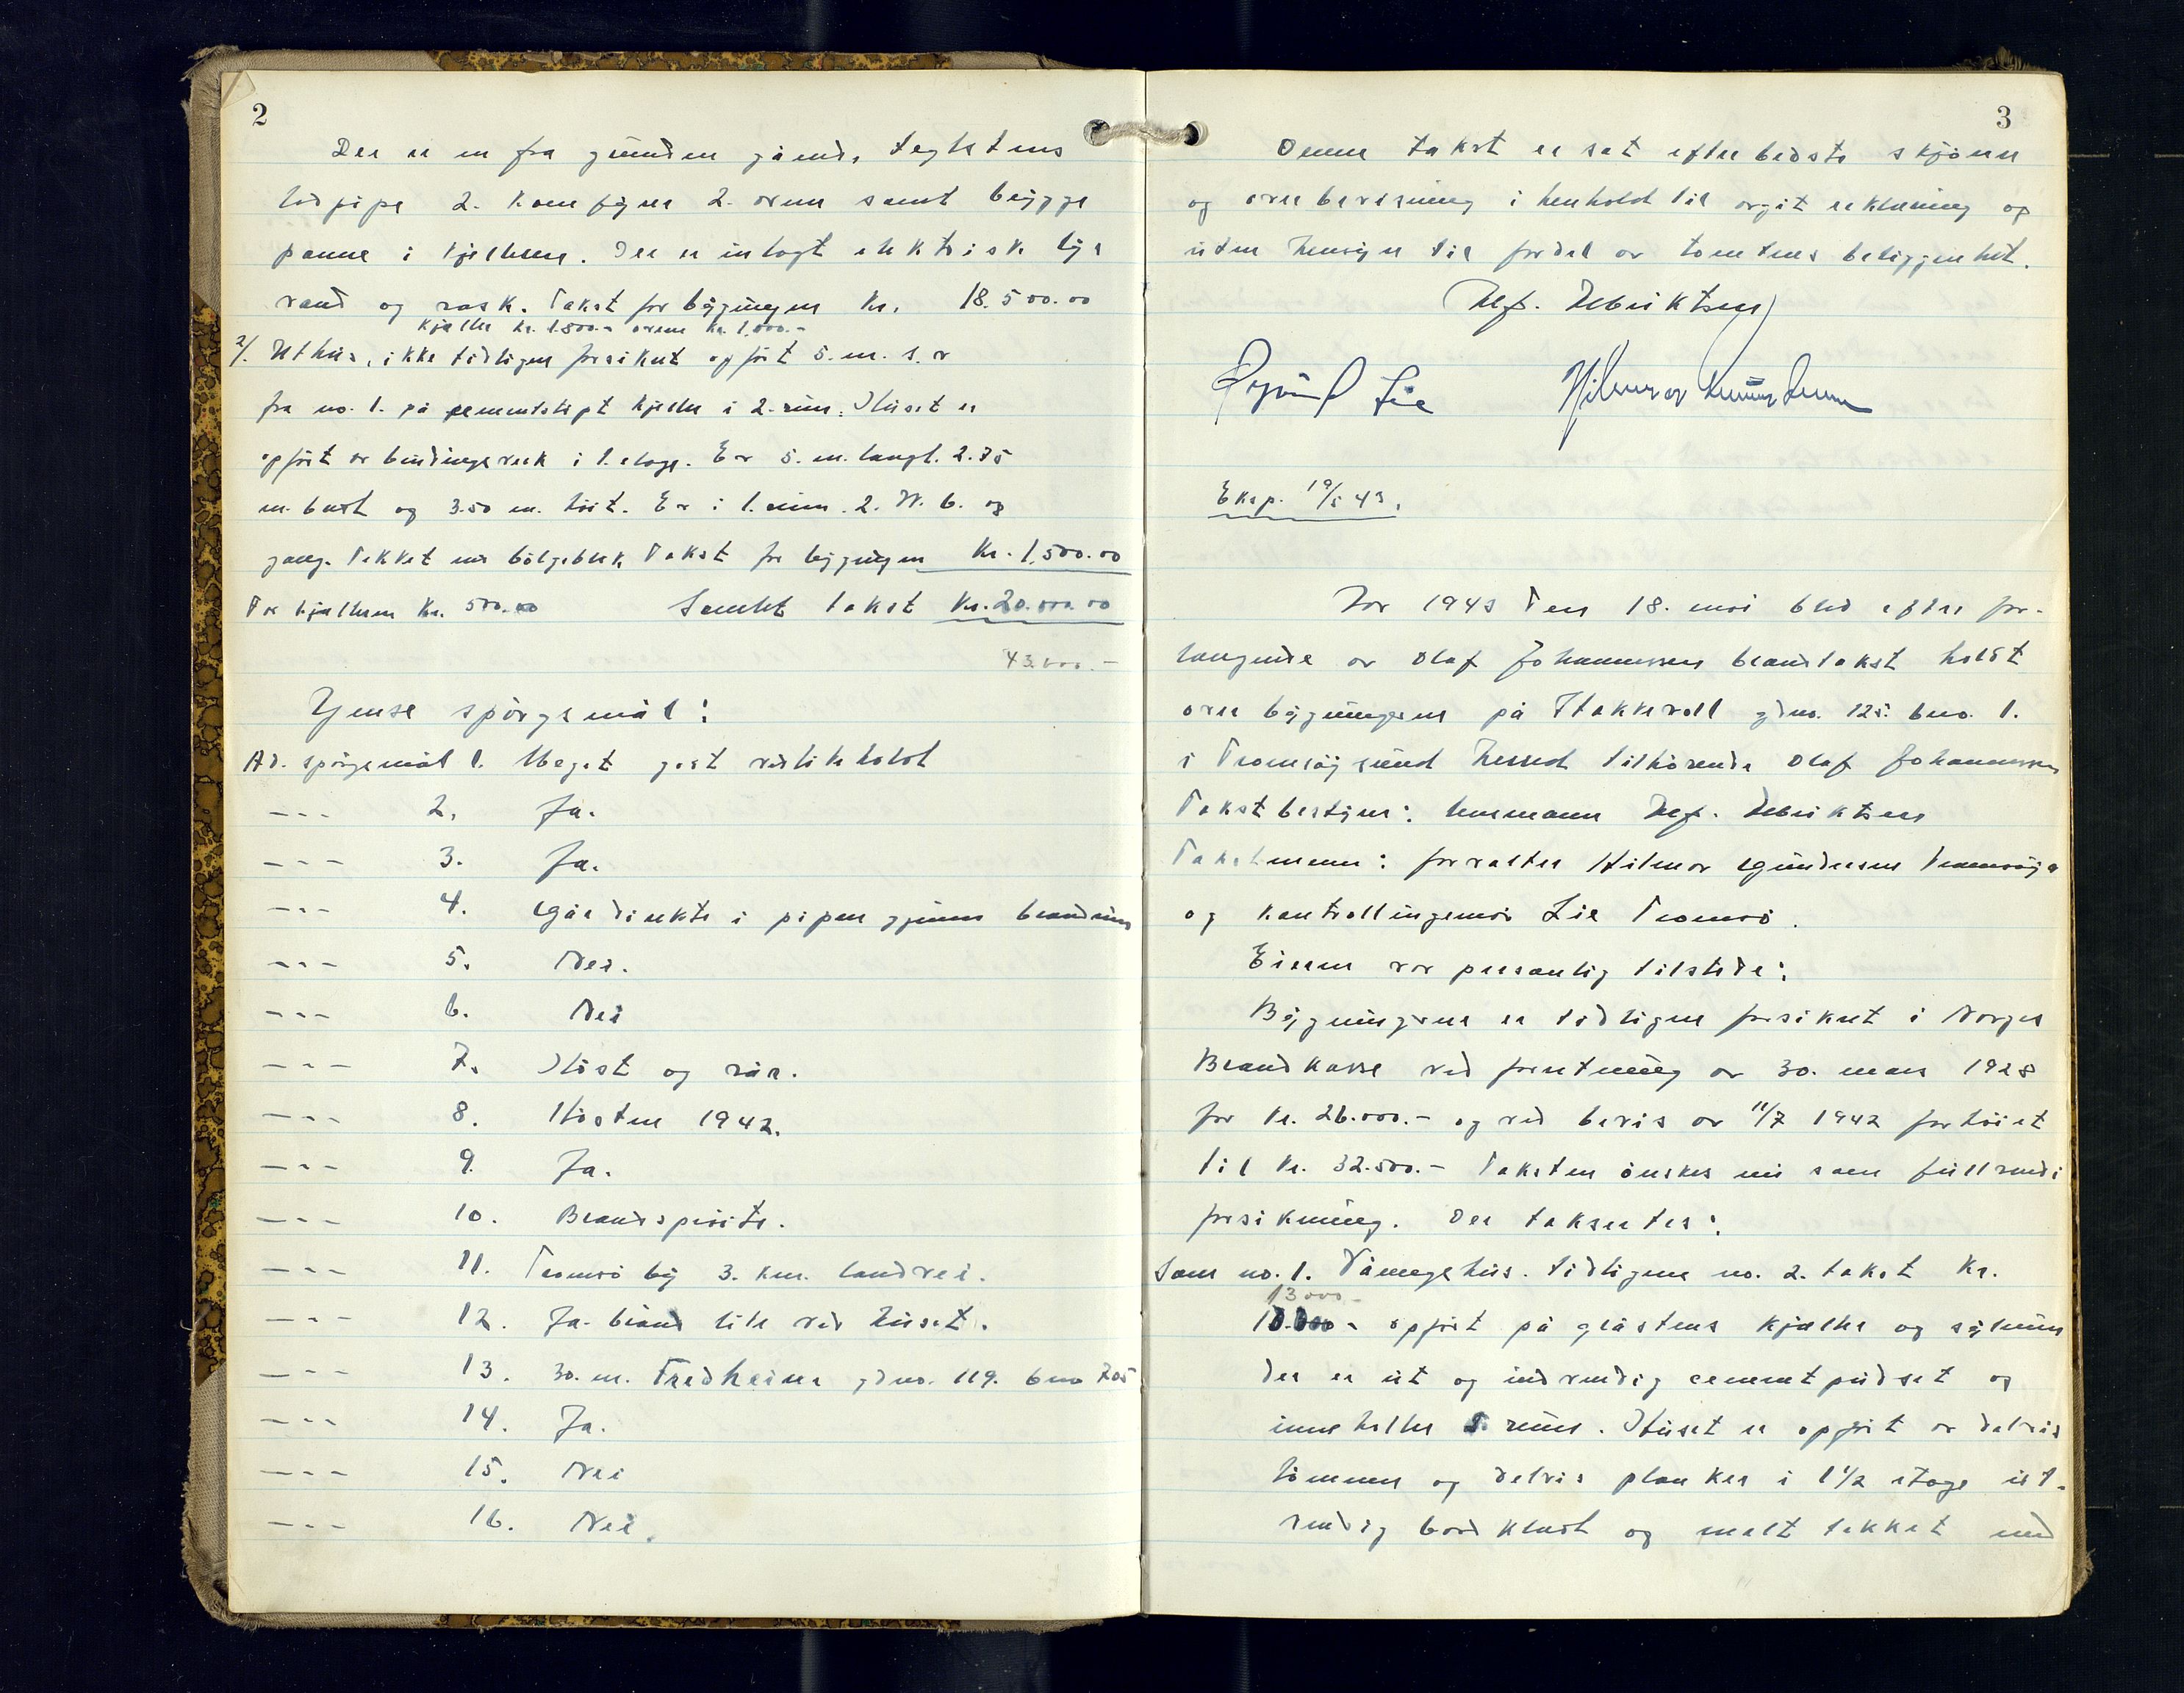 2
Der er en fra grunden gående teglstens
lodpipe 2. komfyrer 2. ovner samt brygge
panne i kjelleren. Der er inlagt elektrisk lys
vand og vask. Takst for bygningen kr. 18.500.00
kjeller kr. 1.500.- ovene kr. 1.000.-
2/. Uthus, ikke tidligere forsikret opført 5. m. s. v
fra no. 1. på sementstøpt kjeller i 2. rum. Huset er
opført av bindingsverk i 1. etage. Er 5. m. langt. 2.75
m. bredt og 3.50 m. høit. Er i 1. rum. 2. W. b. og
gang. Tekket med bølgeblik Takst for bygningen Kr. 1.500.00
For kjelleren Kr. 500.00 Samlet takst Kr. 20.000.00
43.000.-
Gjense spørgsmål:
Ad. spørgsmål 1. Meget godt vedlikeholdt
--- 2. Ja.
--- 3. Ja.
--- 4. Går direkte i pipen gjennem brandmur
--- 5. Nei.
--- 6. Nei
--- 7. Høst og vår.
--- 8. Høsten 1942.
--- 9. Ja.
--- 10. Brandsprøite.
--- 11. Tromsø by 3. km. landvei.
--- 12. Ja. brønd like ved huset.
--- 13. 30. m. Fredheim gdno. 119. bno 705
--- 14. Ja.
--- 15. Nei
--- 16. Nei.
3
Denne takst er sat efter bedste skjønn
og overbevisning i henhold til avgit erklæring og
uten hensyn til fordel av tomtens beliggenhet.
Alf. Albriktsen
Øyvind Lie Hilmar Gundersen
Eksp. 19/5 43.
Aar 1943 den 18. mai blev efter for-
langende av Olaf Johannessen brandtakst holdt
over bygningerne på Stakkevoll gdno. 125. bno. 1.
i Tromsøysund herred tilhørende Olaf Johannessen
Takstbestyrer: lensmann Alf. Albriktsen
Takstmenn: forvalter Hilmar Gundersen Tromsøya
og kontrollingeniør Lie Tromsø.
Eieren var personlig tilstede:
Bygningerne er tidligere forsikret i Norges
Brandkasse ved forretning av 30. mars 1928
for kr. 26.000.- og ved bevis av 11/7 1942 forhøiet
til kr. 32.500.- Taksten ønskes nu som fullverdi
forsikring. Der takseres:
Som no. 1. Våningshus. tidligere no. 2. takst Kr.
13000-
10.000- opført på gråstens kjeller og sylmur
der er ut og indvendig cementpudset og
inneholder rum. Huset er opført av delvis
tømmer og delvis planker i 1 1/2 etage ut-
vendig bordklædt og malt tekket med